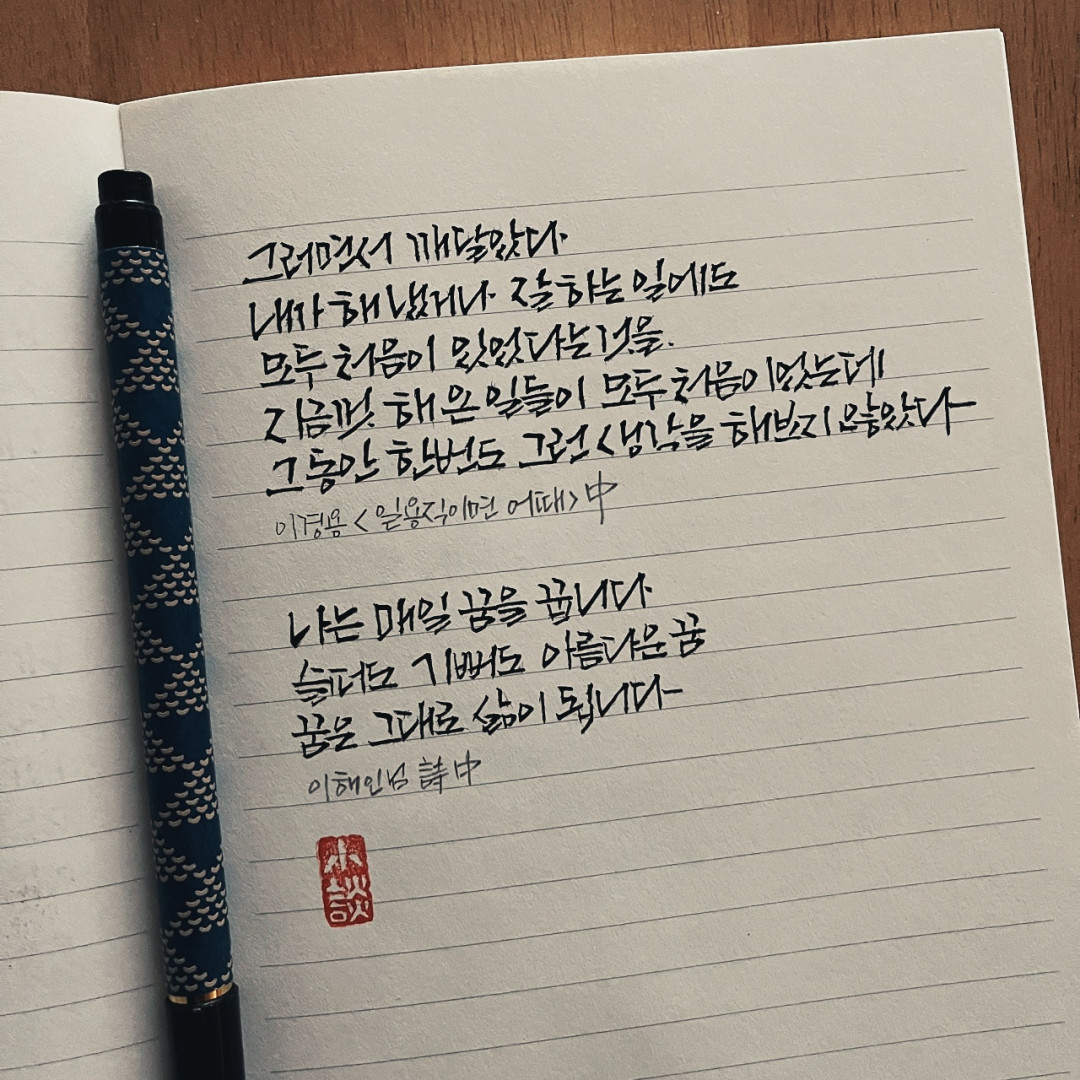 그러면서 깨달았다
내가 해 냈거나 잘하는 일에도
모두 처음이 있었다는 것을.
지금껏 해 온 일들이 모두 처음이었는데
그동안 한번도 그런 생각을 해보지 않았다
이경용 <일용직이면 어때> 中
나는 매일 꿈을 꿉니다
슬퍼도 기뻐도 아름다운 꿈
꿈은 그대로 삶이 됩니다
이해인님 詩 中
小談